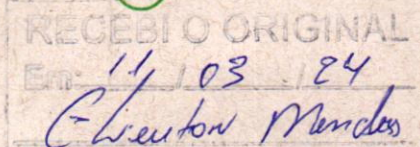 RECEBI O ORIGINAL
Em: 11 / 03 / 24
Mendes